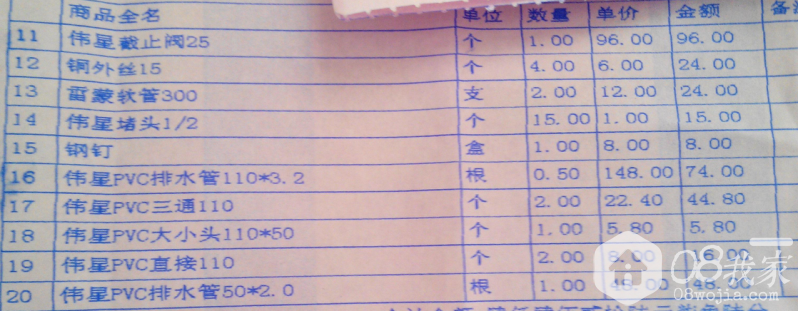 商品全名 单位 数量 单价 金额 备注
11 伟星截止阀25 个 1.00 96.00 96.00
12 铜外丝15 个 4.00 6.00 24.00
13 雷蒙软管300 支 2.00 12.00 24.00
14 伟星堵头1/2 个 15.00 1.00 15.00
15 钢钉 盒 1.00 8.00 8.00
16 伟星PVC排水管110*3.2 根 0.50 148.00 74.00
17 伟星PVC三通110 个 2.00 22.40 44.80
18 伟星PVC大小头110*50 个 1.00 5.80 5.80
19 伟星PVC直接110 个 2.00 8.00 16.00
20 伟星PVC排水管50*2.0 根 1.00 48.00 48.00
08我家
08wojia.com